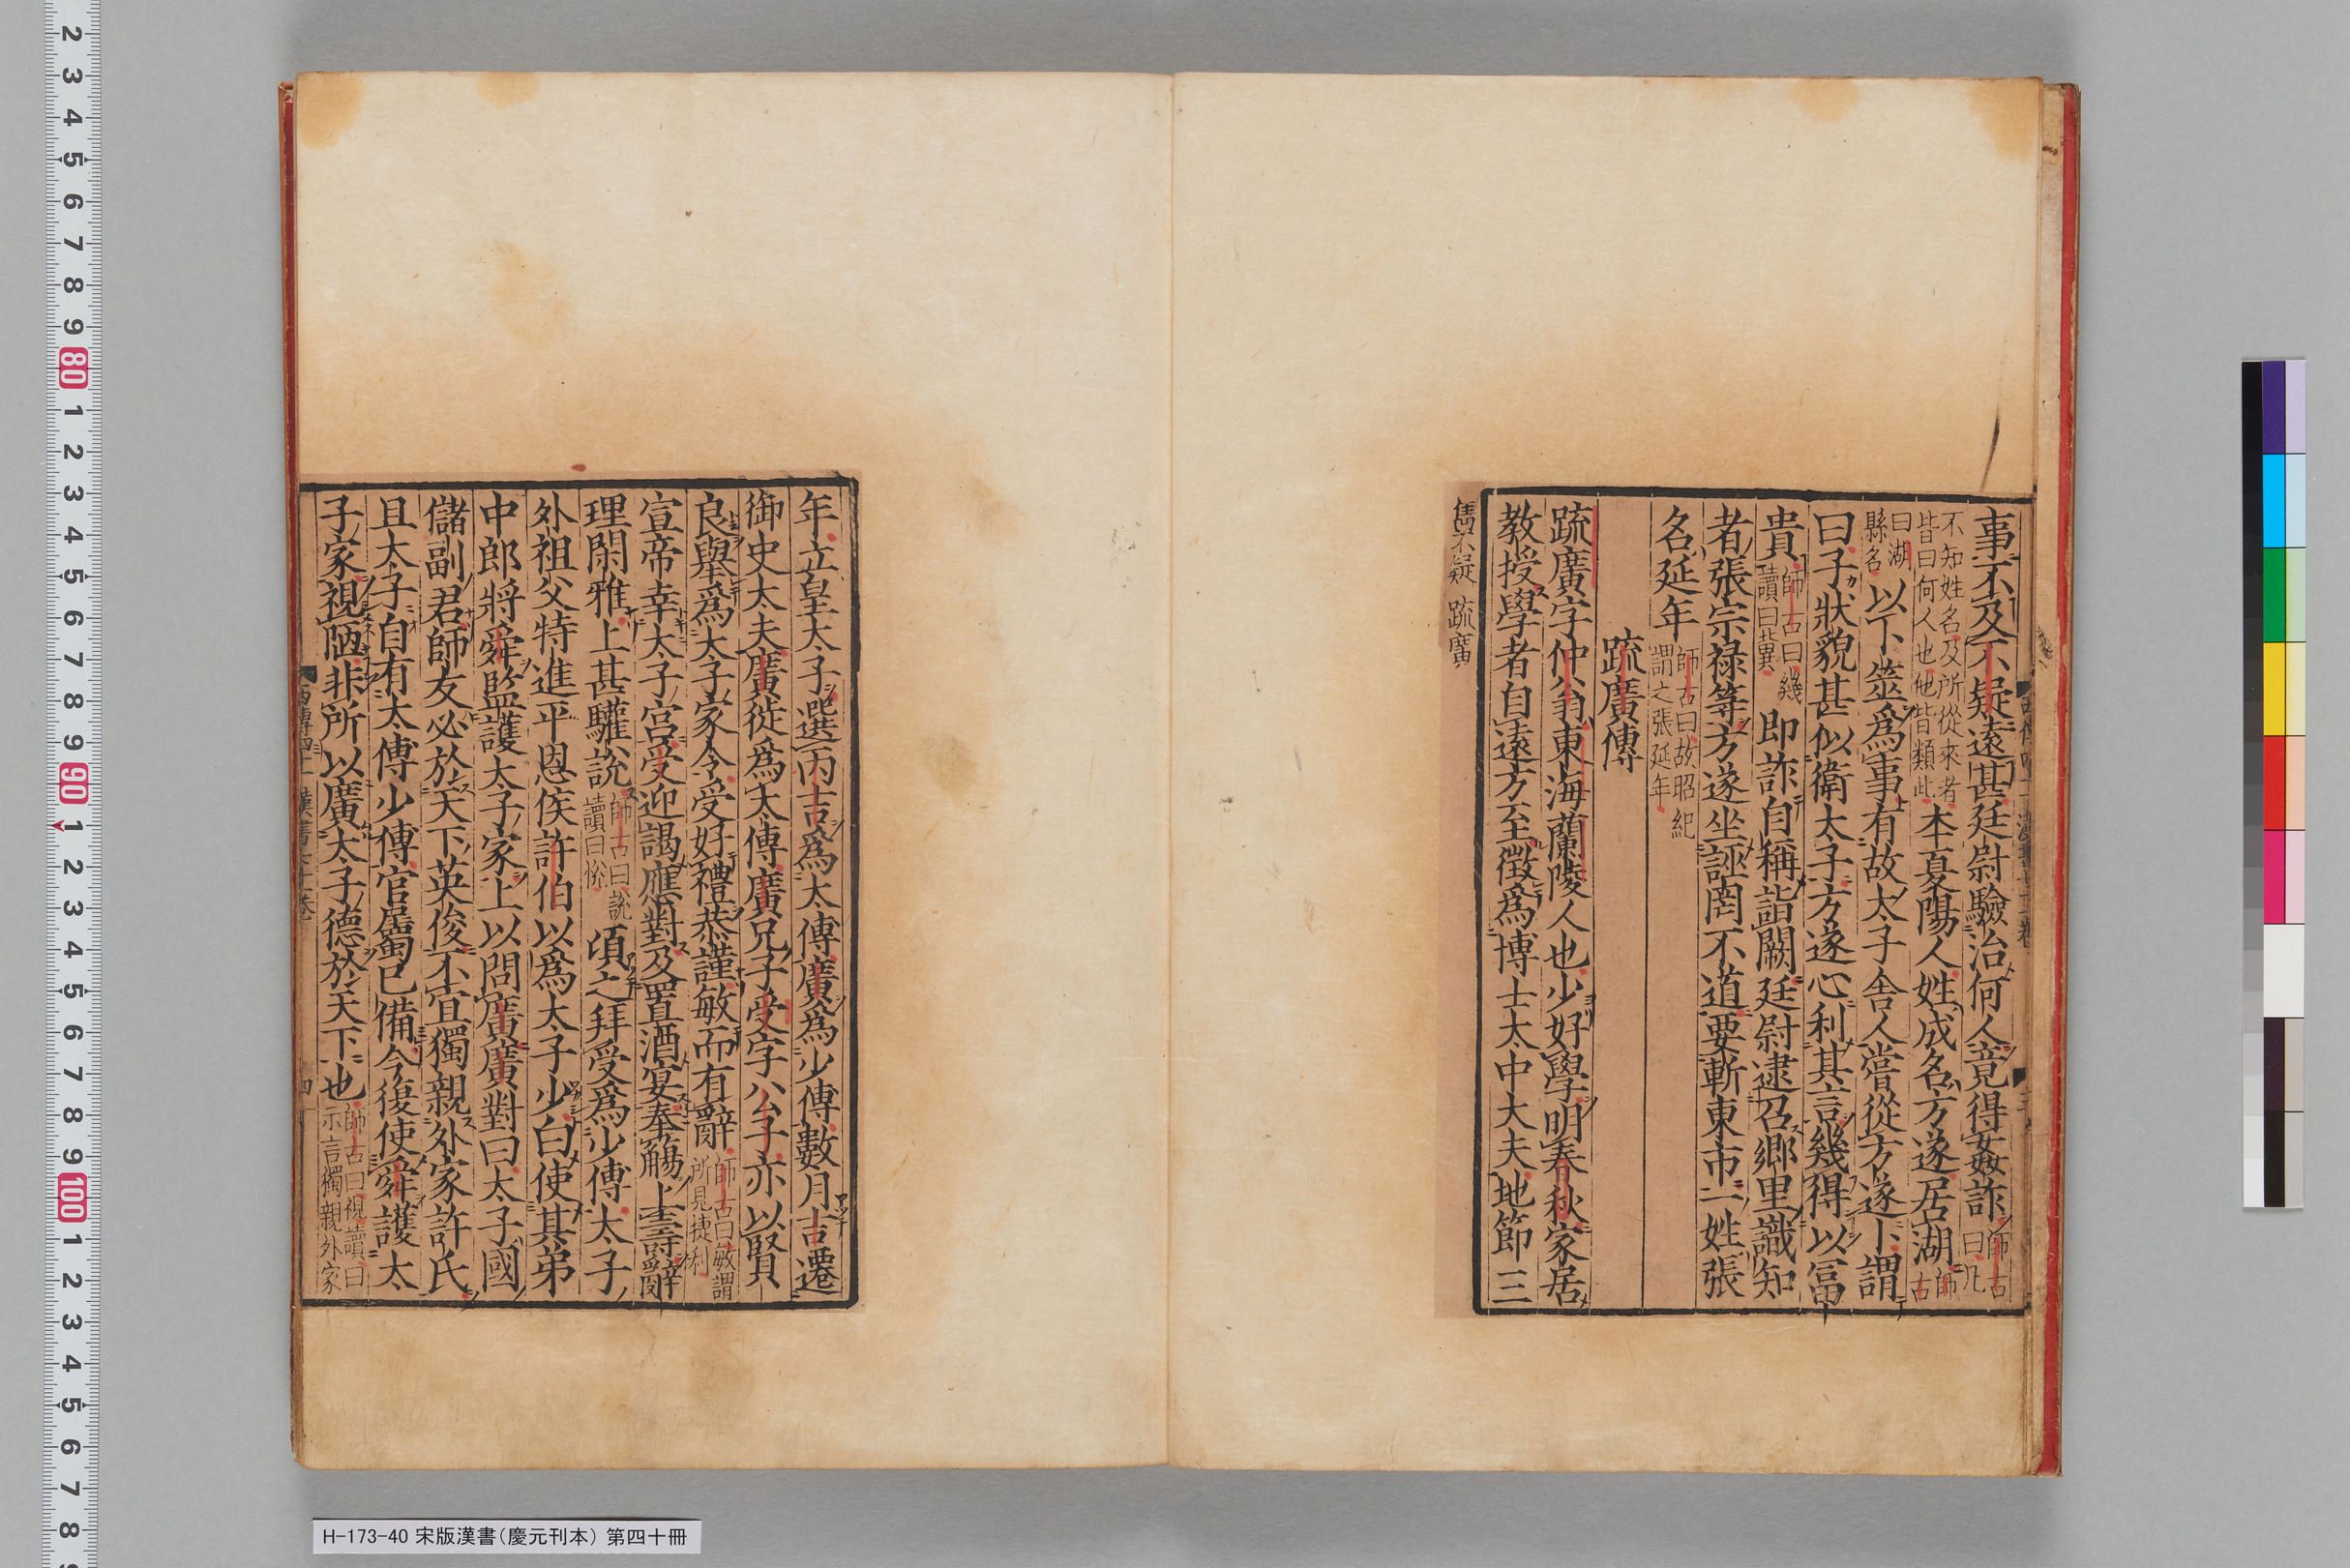 事不及不疑遠甚廷尉驗治何人竟得姦詐師古曰凡
不知姓名及所從來者皆曰何人也他皆類此本夏陽人姓成名方遂居湖師古
曰湖縣名以卜筮爲事有故太子舍人嘗從方遂卜謂
曰子狀貌甚似衛太子方遂心利其言幾得以冨
貴師古曰幾讀曰冀即詐自稱詣闕廷尉逮召鄉里識知
者張宗禄等方遂坐誣罔不道要斬東市一姓張
名延年師古曰故昭紀謂之張延年
疏廣傳
疏廣字仲翁東海蘭陵人也少好學明春秋家居
教授學者自遠方至徵爲博士太中大夫地節三
雋不疑 疏廣
年立皇太子選丙吉爲太傅廣爲少傅數月吉遷
御史大夫廣徙爲太傅廣兄子受字公子亦以賢
良舉爲太子家令受好禮恭謹敏而有辭師古曰敏謂所見捷利
宣帝幸太子宮受迎謁應對及置酒宴奉觴上壽辭
理閑雅上甚驩說師古曰說讀曰悅頃之拜受爲少傅太子
外祖父特進平恩侯許伯以爲太子少白使其弟
中郎將舜監護太子家上以問廣廣對曰太子國
儲副君師友必於天下英俊不宜獨親外家許氏
且太子自有太傅少傅官屬已備今復使舜護太
子家視陋非所以廣太子德於天下也師古曰視讀曰示言獨親外家
西傳四十一 漢書七十一卷
四
H-173-40 宋版漢書（慶元刊本） 第四十冊